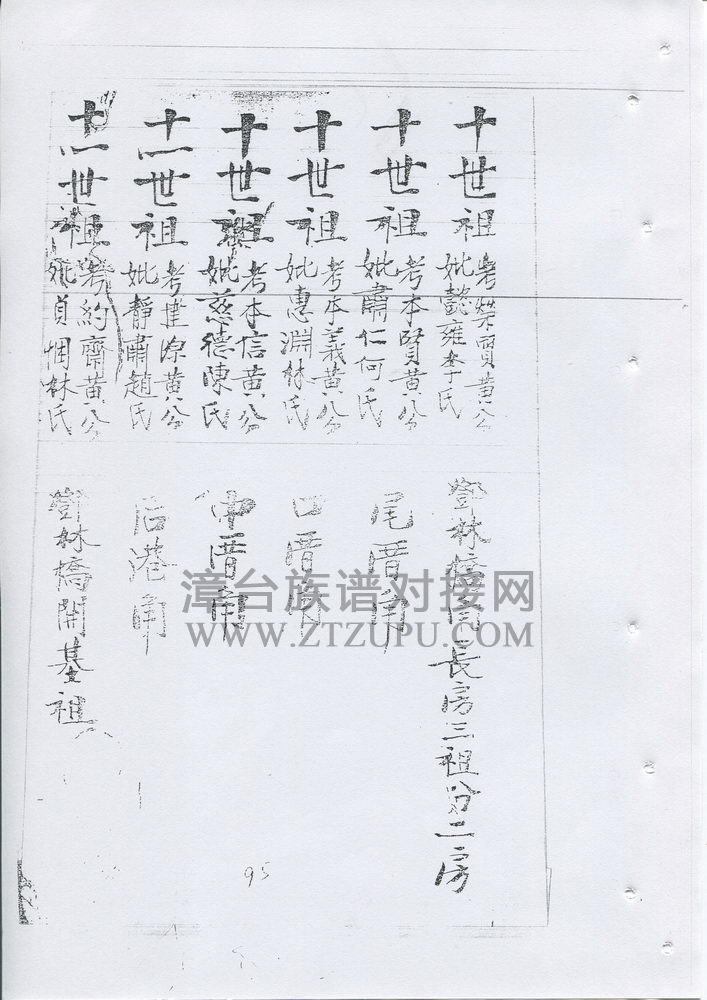 十世祖 考樊賢黃公 妣懿雍李氏 鄧林橋 長房三祖分二房
十世祖 考本賢黃公 妣肅仁何氏 尾厝角
十世祖 考本義黃公 妣惠淵林氏 口厝角
十世祖 考本信黃公 妣慈德陳氏 中厝角
十一世祖 考 黃公 妣靜肅趙氏 后港角
十一世祖 考約齋黃公 妣貞惆林氏 鄧林橋開基祖
漳台族谱对接网
WWW.ZTZUPU.COM
95